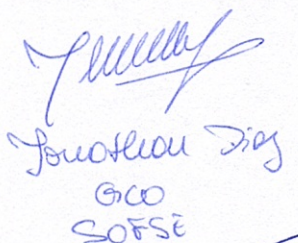 Jonathan Diaz
GCO
SOFSE